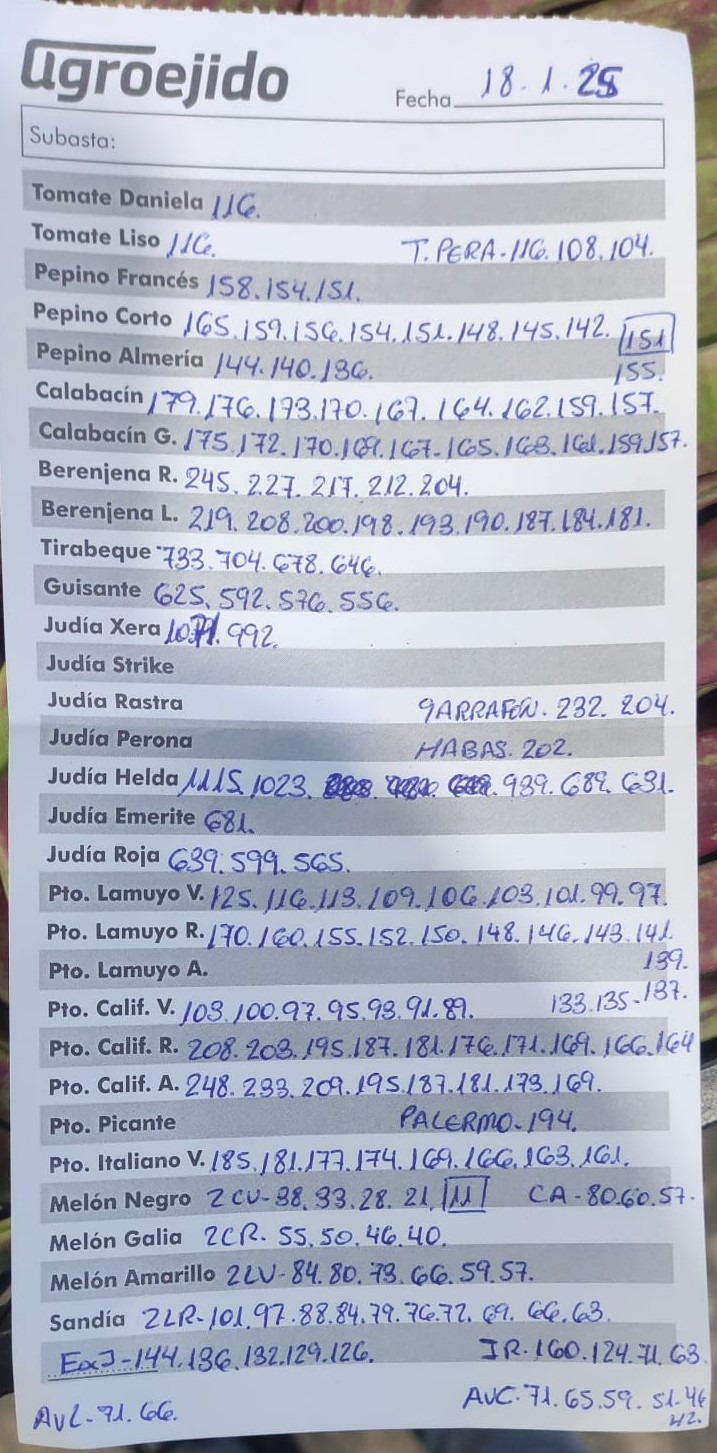 agroejido
Fecha 18.1.25
Subasta:
Tomate Daniela 116.
Tomate Liso 116. T.PERA-116.108.104.
Pepino Francés 158.154.151.
Pepino Corto 165.159.156.154.151.148.145.142. 151
Pepino Almería 144.140.136. 155.
Calabacín 179.176.173.170.167.164.162.159.157.
Calabacín G. 175.172.170.169.167-165.163.161.159.157.
Berenjena R. 245.227.217.212.204.
Berenjena L. 219.208.200.198.193.190.187.184.181.
Tirabeque 733.704.678.646.
Guisante 625.592.576.556.
Judía Xera 992.
Judía Strike
Judía Rastra GARRAFON. 232. 204.
Judía Perona HABAS. 202.
Judía Helda 1115.1023. 939.689.631.
Judía Emerite 681.
Judía Roja 639.599.565.
Pto. Lamuyo V. 125.116.113.109.106.103.101.99.97.
Pto. Lamuyo R. 170.160.155.152.150.148.146.143.141.
Pto. Lamuyo A. 139.
Pto. Calif. V. 103.100.97.95.93.91.89. 133.135-137.
Pto. Calif. R. 208.203.195.187.181.176.171.169.166.164
Pto. Calif. A. 248.233.209.195.187.181.173.169.
Pto. Picante PALERMO-194.
Pto. Italiano V. 185.181.177.174.169.166.163.161.
Melón Negro 2CU-38.33.28.21. 11 CA-80.60.57.
Melón Galia 2CR-55.50.46.40.
Melón Amarillo 2LV-84.80.73.66.59.57.
Sandía 2LR-101.97.88.84.79.76.72.69.66.63.
ExJ-144.136.132.129.126. JR-160.124.71.63.
AVC-71.65.59.51.46
AVL-71.66. 42.